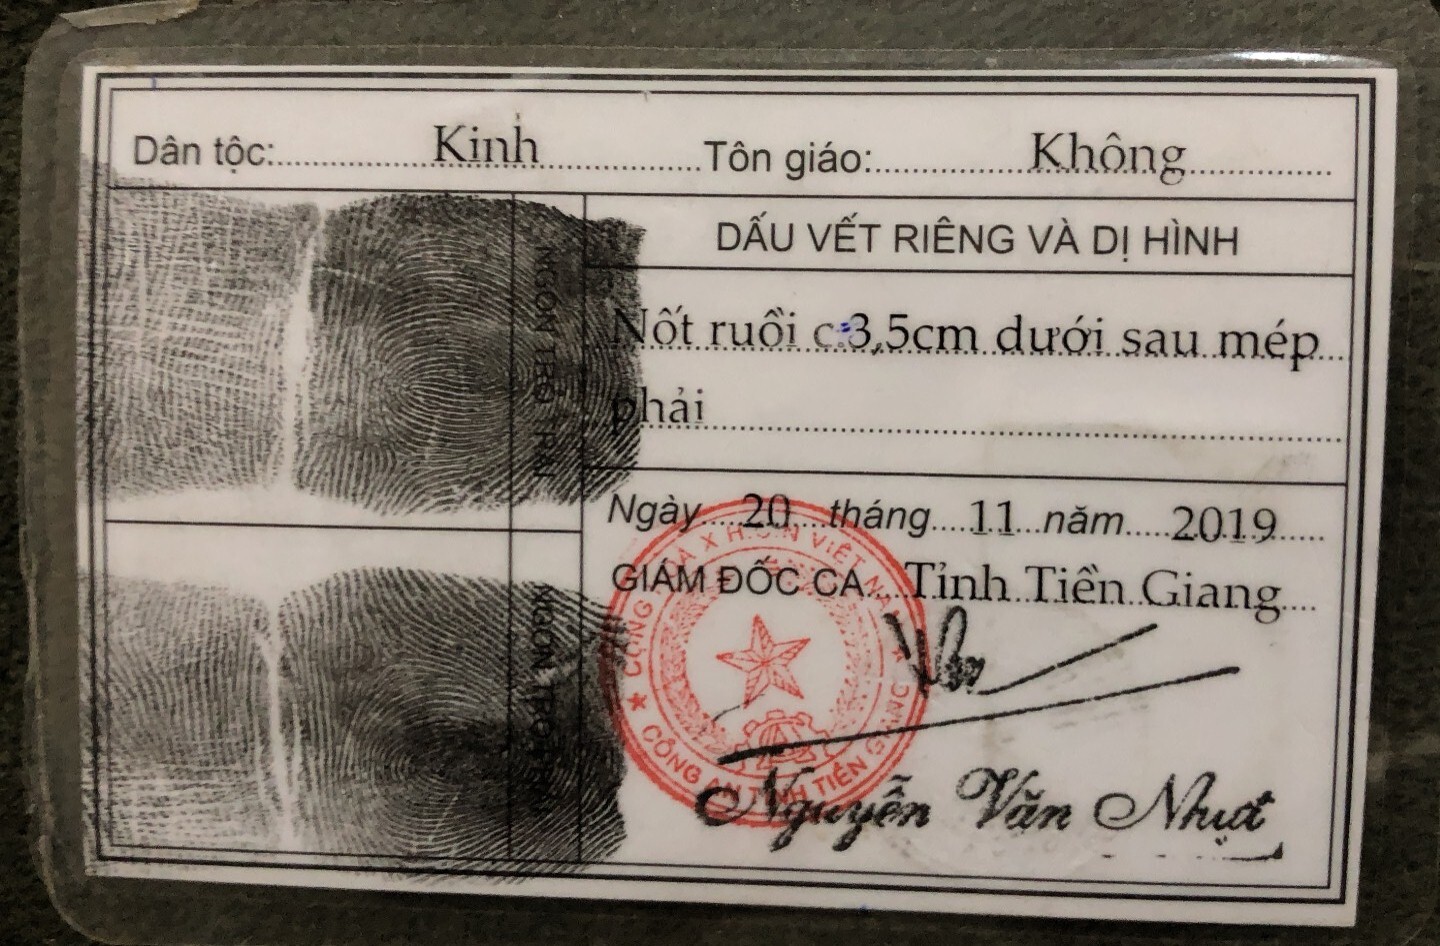 Dân tộc: Kinh Tôn giáo: Không
DẤU VẾT RIÊNG VÀ DỊ HÌNH
Nốt ruồi c:3,5cm dưới sau mép
phải
NGÓN TRỎ TRÁI
Ngày 20 tháng 11 năm 2019
GIÁM ĐỐC CA Tỉnh Tiền Giang
CÔNG AN TỈNH TIỀN GIANG
NGÓN TRỎ
Nguyễn Văn Nhựt